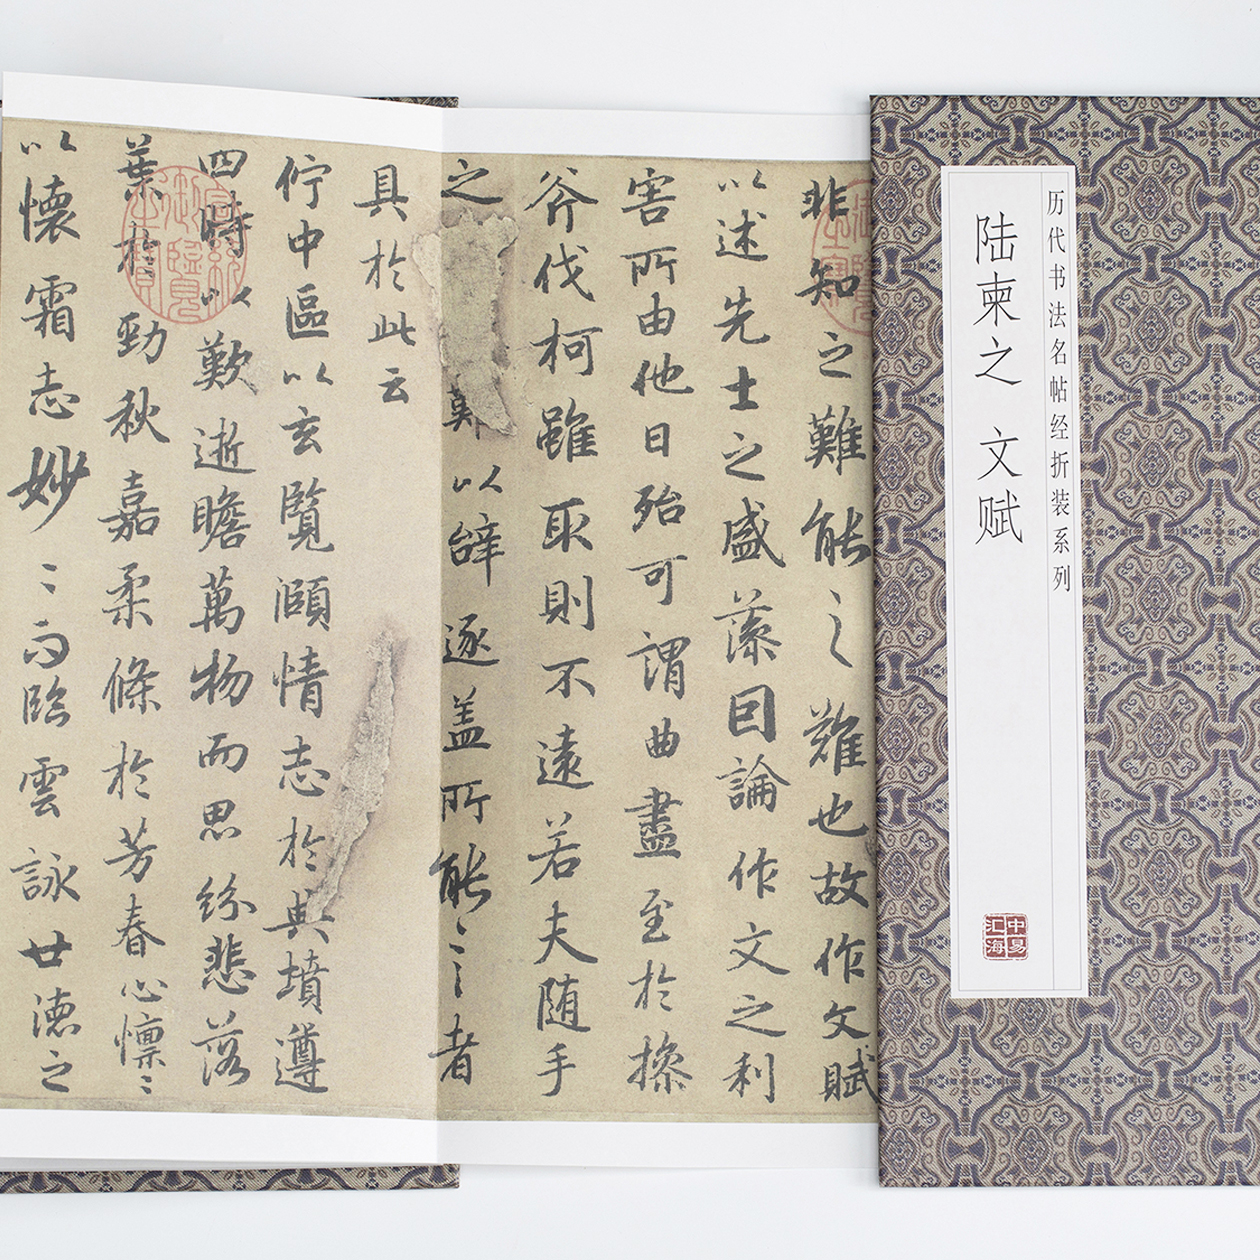 历代书法名帖经折装系列
陆柬之 文赋
中易汇海
非知之難能〻之難也故作文賦
以述先士之盛藻因論作文之利
害所由他日殆可謂曲盡至於操
斧伐柯雖取則不遠若夫随手
之以辝逐盖所能〻之者
具於此云
佇中區以玄覽頤情志於典墳遵
四時以歎逝瞻萬物而思紛悲落
葉於勁秋嘉柔條於芳春心懍〻
以懷霜志妙〻而臨雲詠世德之